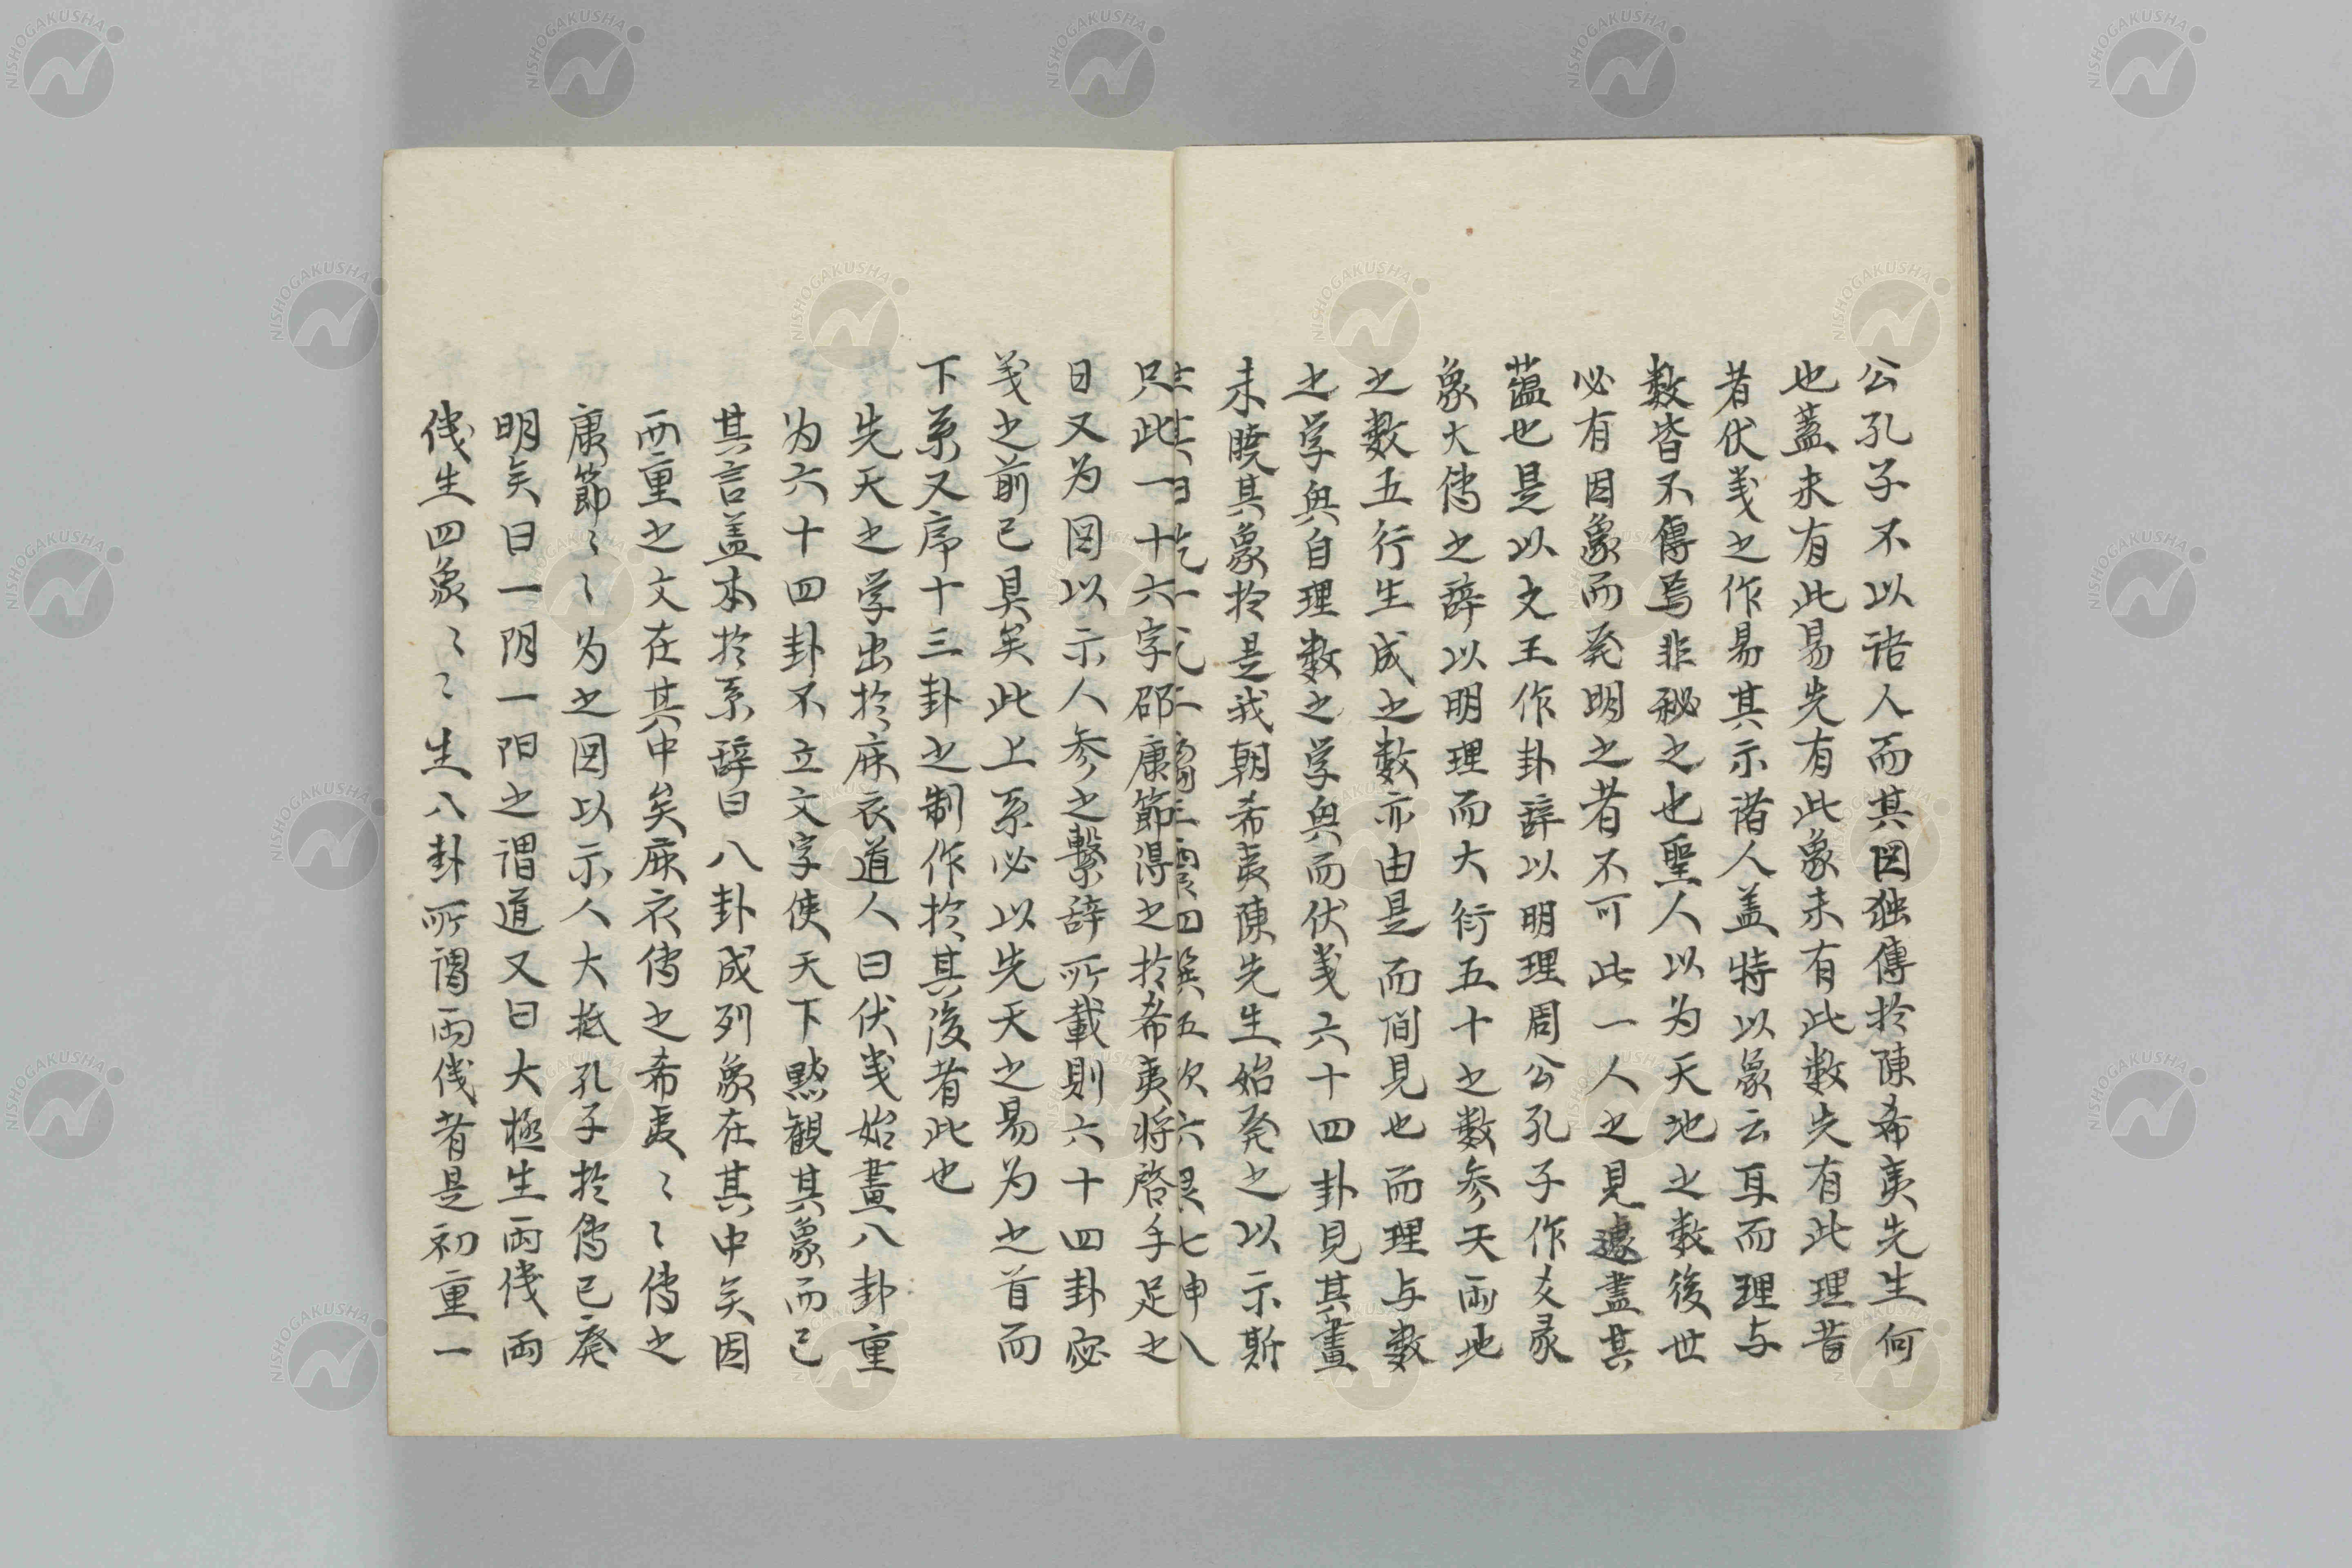 公孔子不以語人而其図独傳於陳希夷先生何
也蓋未有此易先有此象未有此数先有此理昔
者伏羲之作易其示諸人盖特以象云耳而理与
数皆不傳焉非秘之也聖人以為天地之数後世
必有因象而発明之者不可此一人之見遽盡其
蘊也是以文王作卦辞以明理周公孔子作爻彖
象大傳之辞以明理而大衍五十之数参天両地
之数五行生成之数亦由是而间見也而理与数
之学與自理数之学與而伏羲六十四卦見其畫
未曉其象於是我朝希夷陳先生始発之以示斯
世其曰乾一兌二离三震四巽五坎六艮七坤八
只此一十六字邵康節得之於希夷将啓手足之
日又为図以示人参之繋辞所載則六十四卦宓
羲之前已具矣此上系必以先天之易为之首而
下系又序十三卦之制作於其後者此也
先天之学出於麻衣道人曰伏羲始畫八卦重
为六十四卦不立文字使天下黙観其象而已
其言盖本於系辞曰八卦成列象在其中矣因
而重之文在其中矣麻衣傳之希夷〻〻傳之
康節〻〻为之図以示人大抵孔子於傳已発
明矣曰一阴一阳之谓道又曰大極生両儀両
儀生四象〻〻生八卦所谓両儀者是初重一